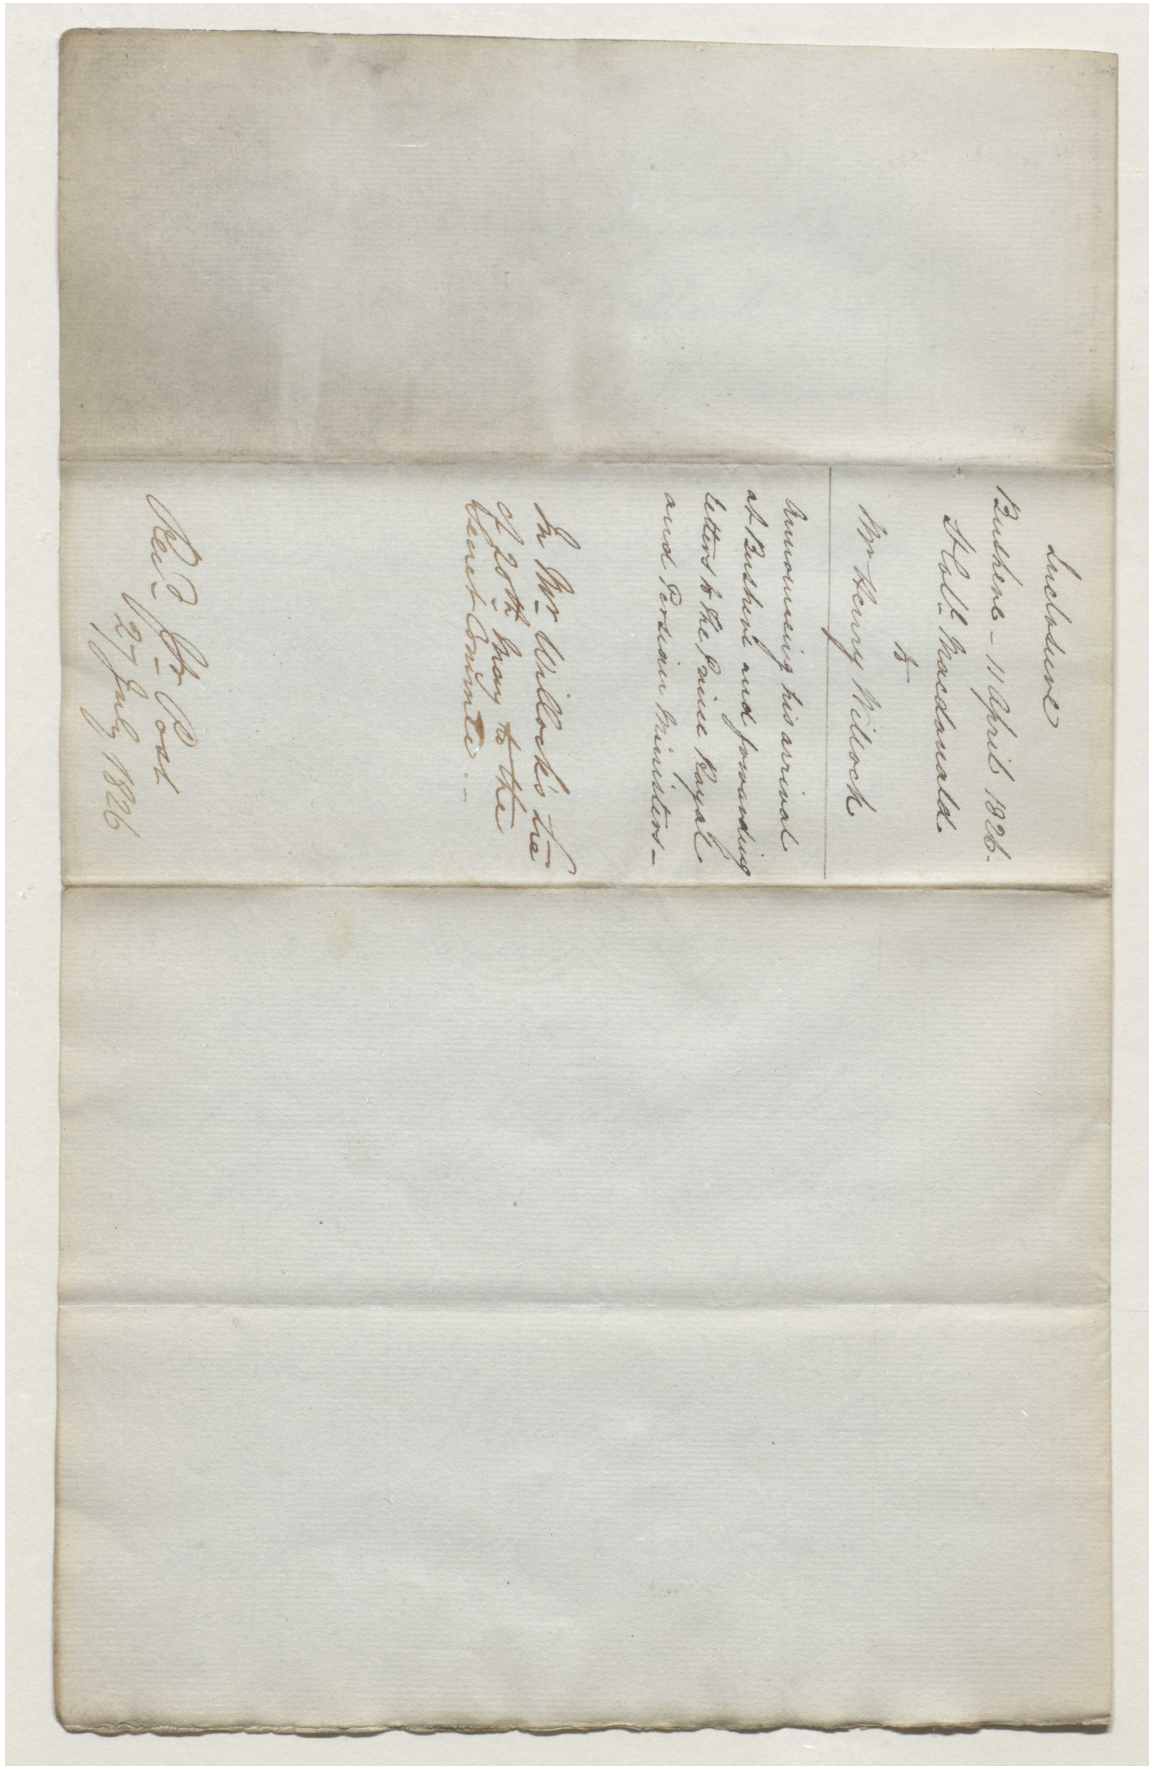 Inclosure
Bushire – 11 April 1826 –
Lt Col. Macdonald
to
Mr Henry Willock
Announcing his arrival
at Bushire and forwarding
letters to the Prince Royal
and Persian Ministers –
In Mr Willock's Lre
of 20th May to the
Secret Commtee –
Recd pr Post
27 July 1826